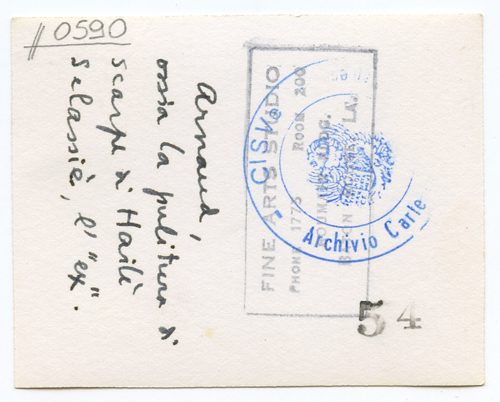 0590
Arnaud,
ossia la pulitura di
scarpe di Hailè
Selassiè, l'"ex".
FINE ARTS STUDIO
PHONE 1775 ROOM 200
BLDG.
LA.
CISK
Archivio Carte
54